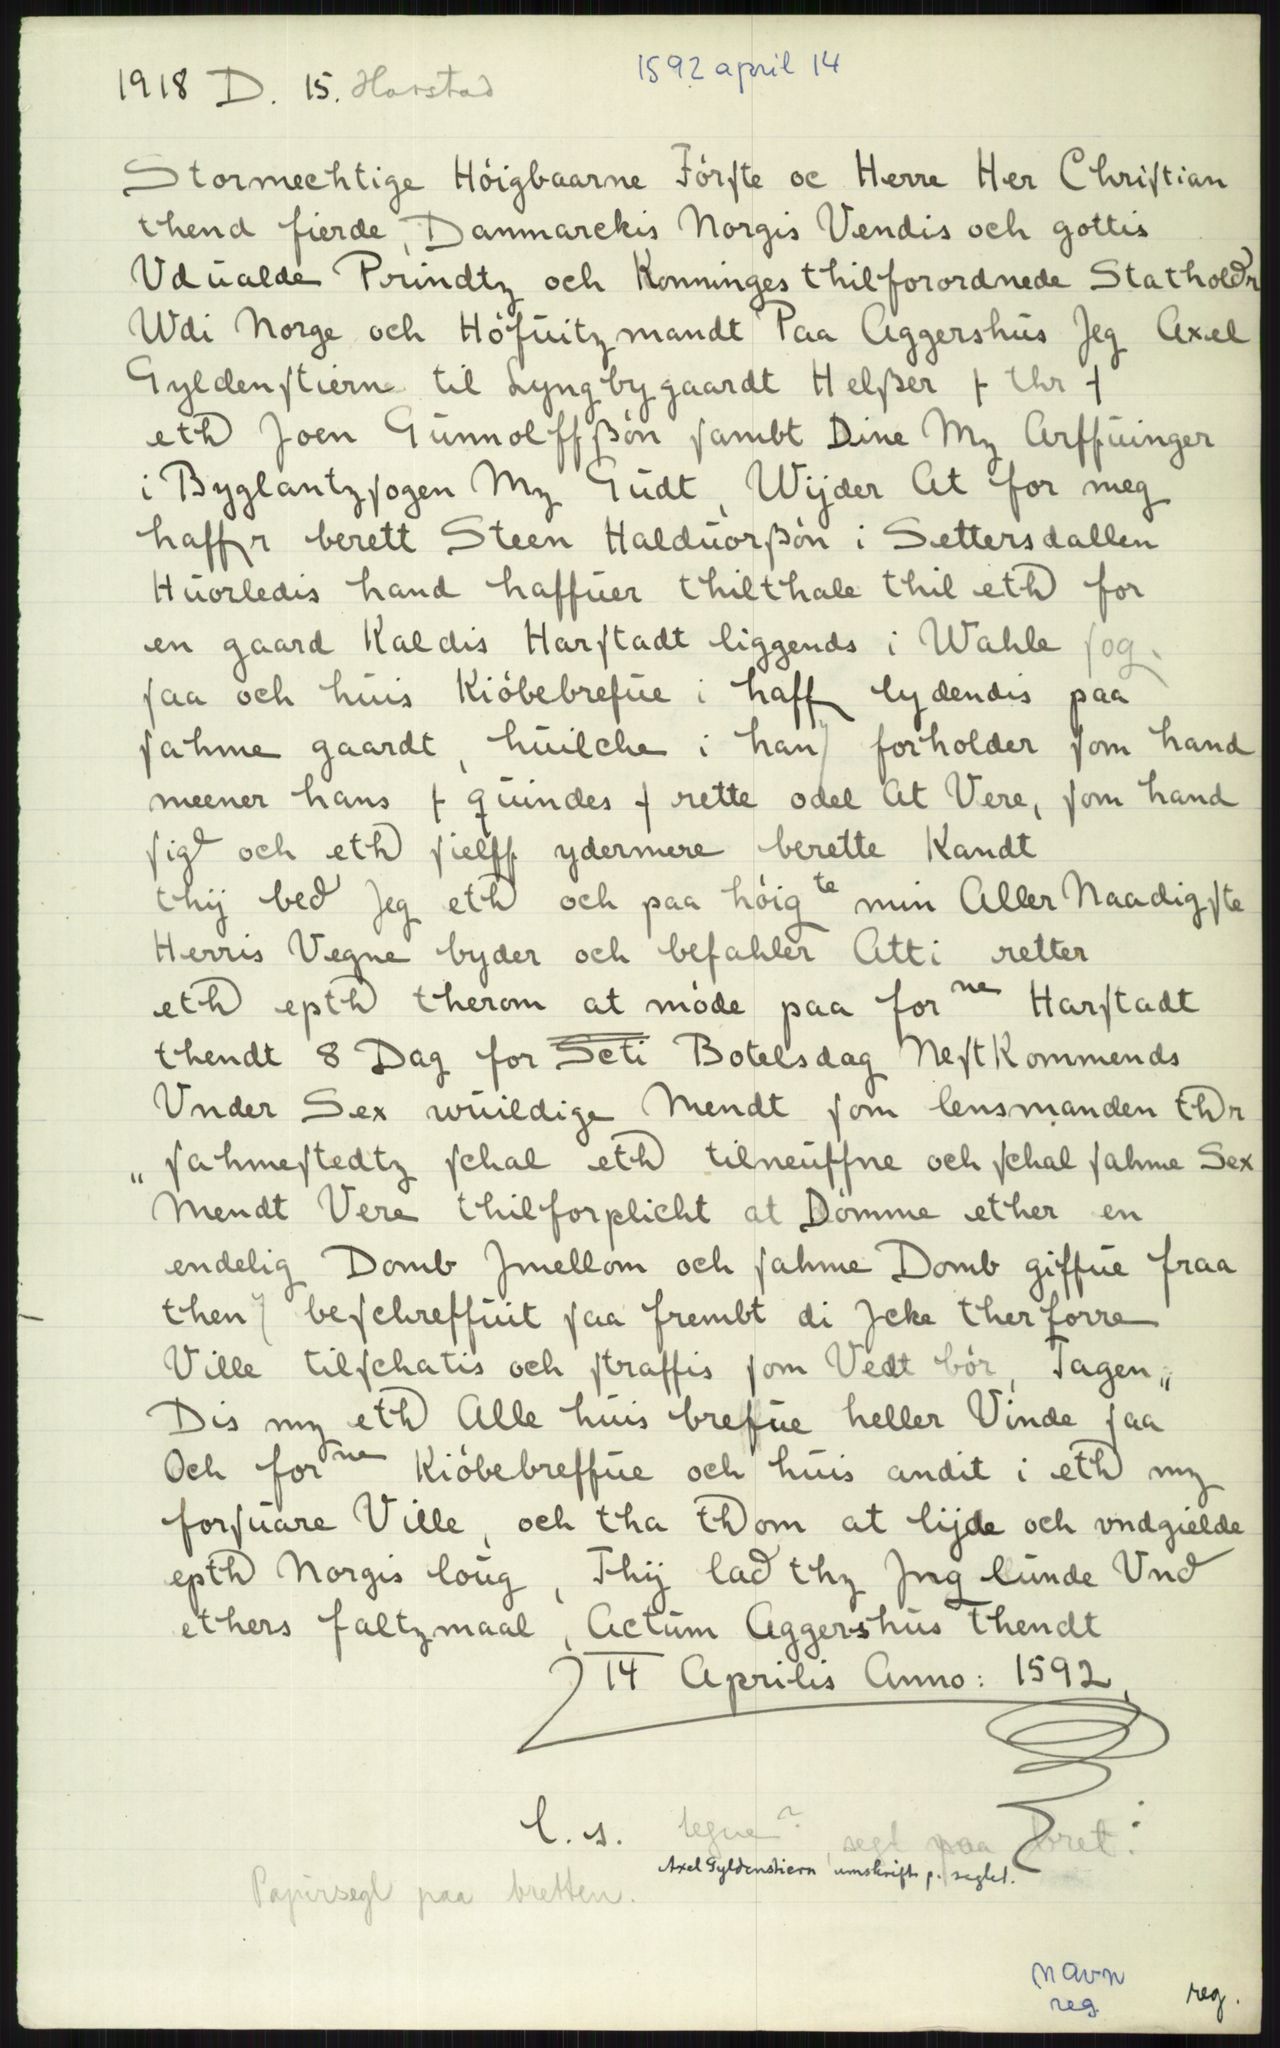 1918 D. 15. Harstad
1592 april 14
Stormechtige Höigbaarne Förſte oc Herre Her Chriſtian
thend fierde, Danmarckis Norgis Vendis och gottis
Vdualde Prindtz och Konninges thilforordnede Statholdr
Wdi Norge och Höfuitzmandt Paa Aggershus Jeg Axel
Gyldenſtiern til Lyngbygaardt Helßer ⁒ thr ⁒
eth Joen Gunnolffßön ſambt Dine Mz Arffuinger
i Byglantzſogen Mz Gudt, Wijder At for meg
haffr berett Steen Halduorßön i Settersdallen
Huorledis hand haffuer thilthale thil eth for
en gaard Kaldis Harſtadt liggends i Wahle ſog.
ſaa och huis Kiöbebrefue i haff lydendis paa
ſahme gaardt, huilche i han forholder ſom hand
meener hans ⁒ quindes ⁒ rette odel At Vere, ſom hand
ſig och eth ſielff ydermere berette Kandt
thij bed Jeg eth och paa höigte min Aller Naadigſte
Herris Vegne byder och befahler Atti retter
eth epth therom at möde paa forne Harſtadt
thendt 8 Dag for Scti Botelsdag NeſtKommends
Vnder Sex wuildige Mendt ſom lensmanden thr
„ ſahmeſtedtz ſchal eth tilneuffne och ſchal ſahme Sex
Mendt Vere thilforplicht at Dömme ether en
endelig Domb Jmellom och ſahme Domb giffue fraa
then beſchreffuit ſaa frembt di Jcke therforre
Ville tilſchatis och ſtraffis ſom Vedt bör, Tagen„
Dis mz eth Alle huis brefue heller Vinde ſaa
Och forne Kiöbebreffue och huis andit i eth mz
forſuare Ville, och tha thom at lijde och vndgielde
epth Norgis loug, Thij lad thz Jng lunde Vnd
ethers faltzmaal, Actum Aggershus thendt
14 Aprilis Anno: 1592,
l. s. segl paa bret.
Axel Gyldenstiern umskrift p. seglet.
Papirsegl paa bretten.
navn
reg
reg.